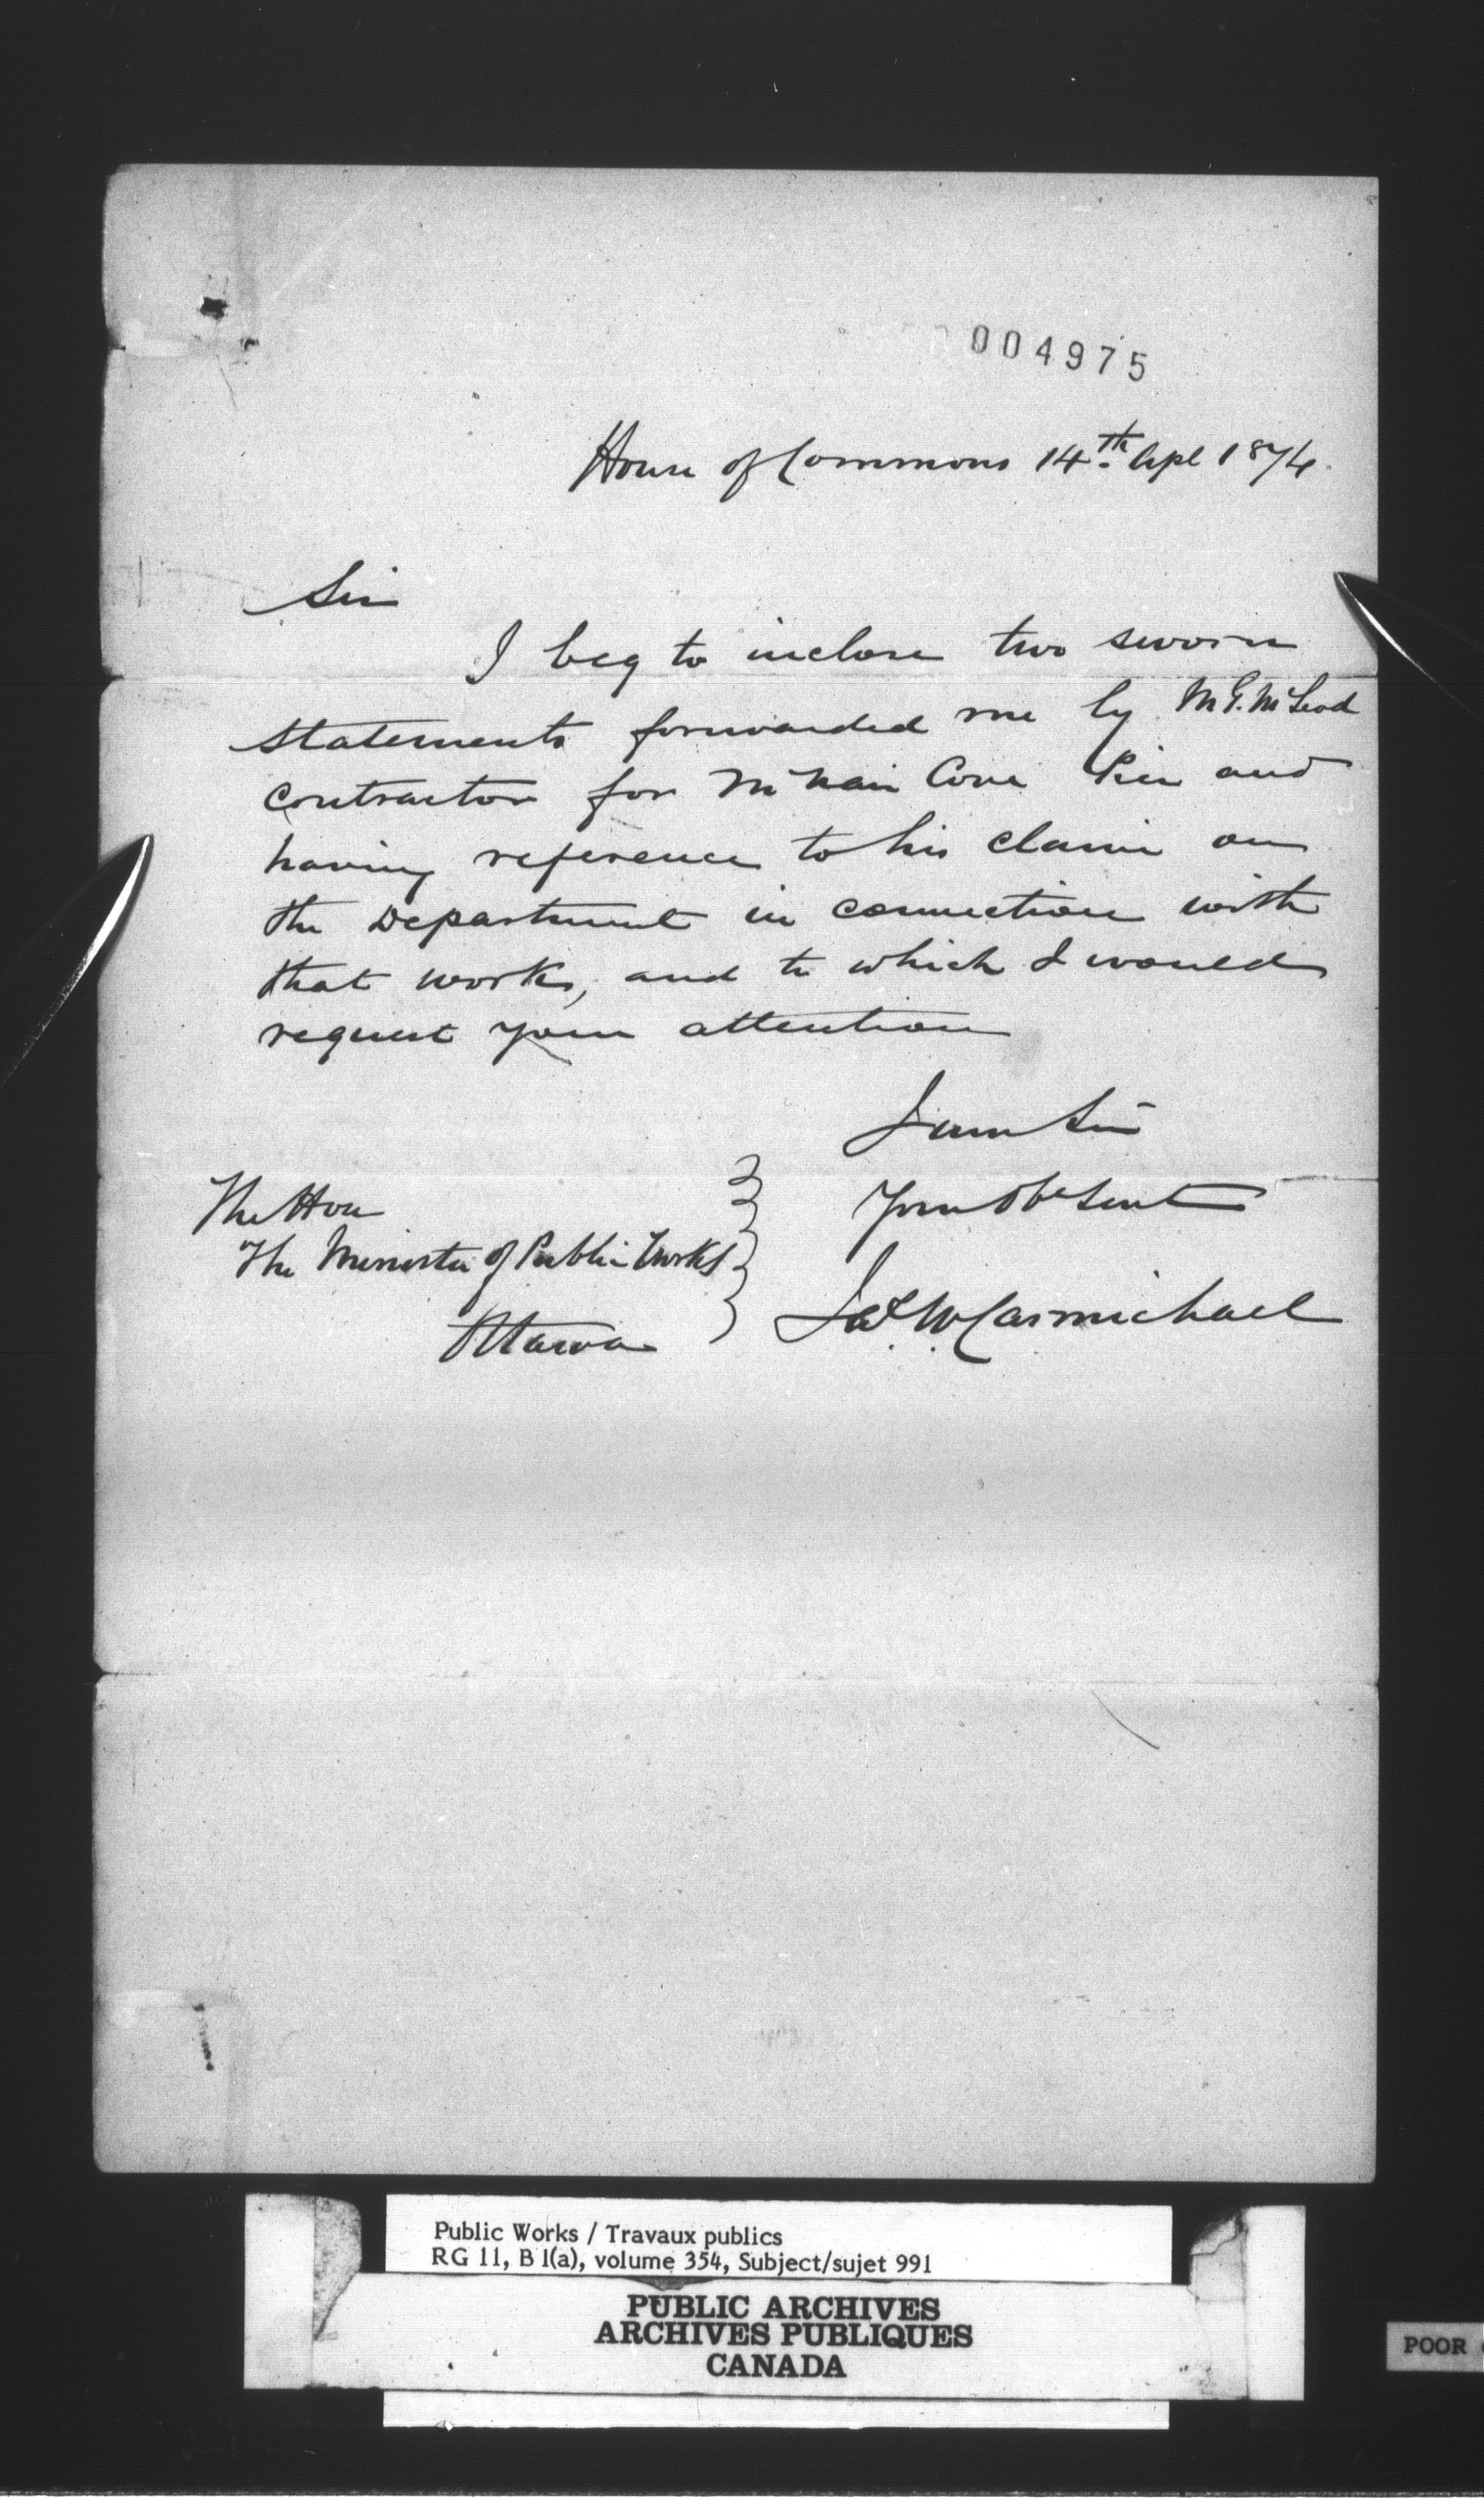 004975
House of Commons 14th Apl 1874
Sir
I beg to inclose two sworn
statements forwarded me by Mr. McLeod
contractor for McNair Cove Pier and
having reference to his claim on
the Department in connection with
that work, and to which I would
request your attention
I am Sir
Your Obt Sert
The Hon
The Minister of Public Works
Ottawa
Jas W Carmichael
Public Works / Travaux publics
RG 11, B 1(a), volume 354, Subject/sujet 991
PUBLIC ARCHIVES
ARCHIVES PUBLIQUES
CANADA
POOR